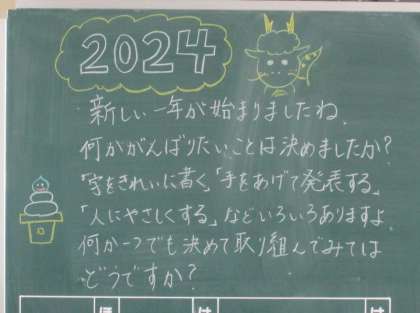 2024
新しい一年が始まりましたね。
何かがんばりたいことは決めましたか?
「字をきれいに書く」「手をあげて発表する」
「人にやさしくする」などいろいろありますよ。
何か一つでも決めて取り組んでみては
どうですか?